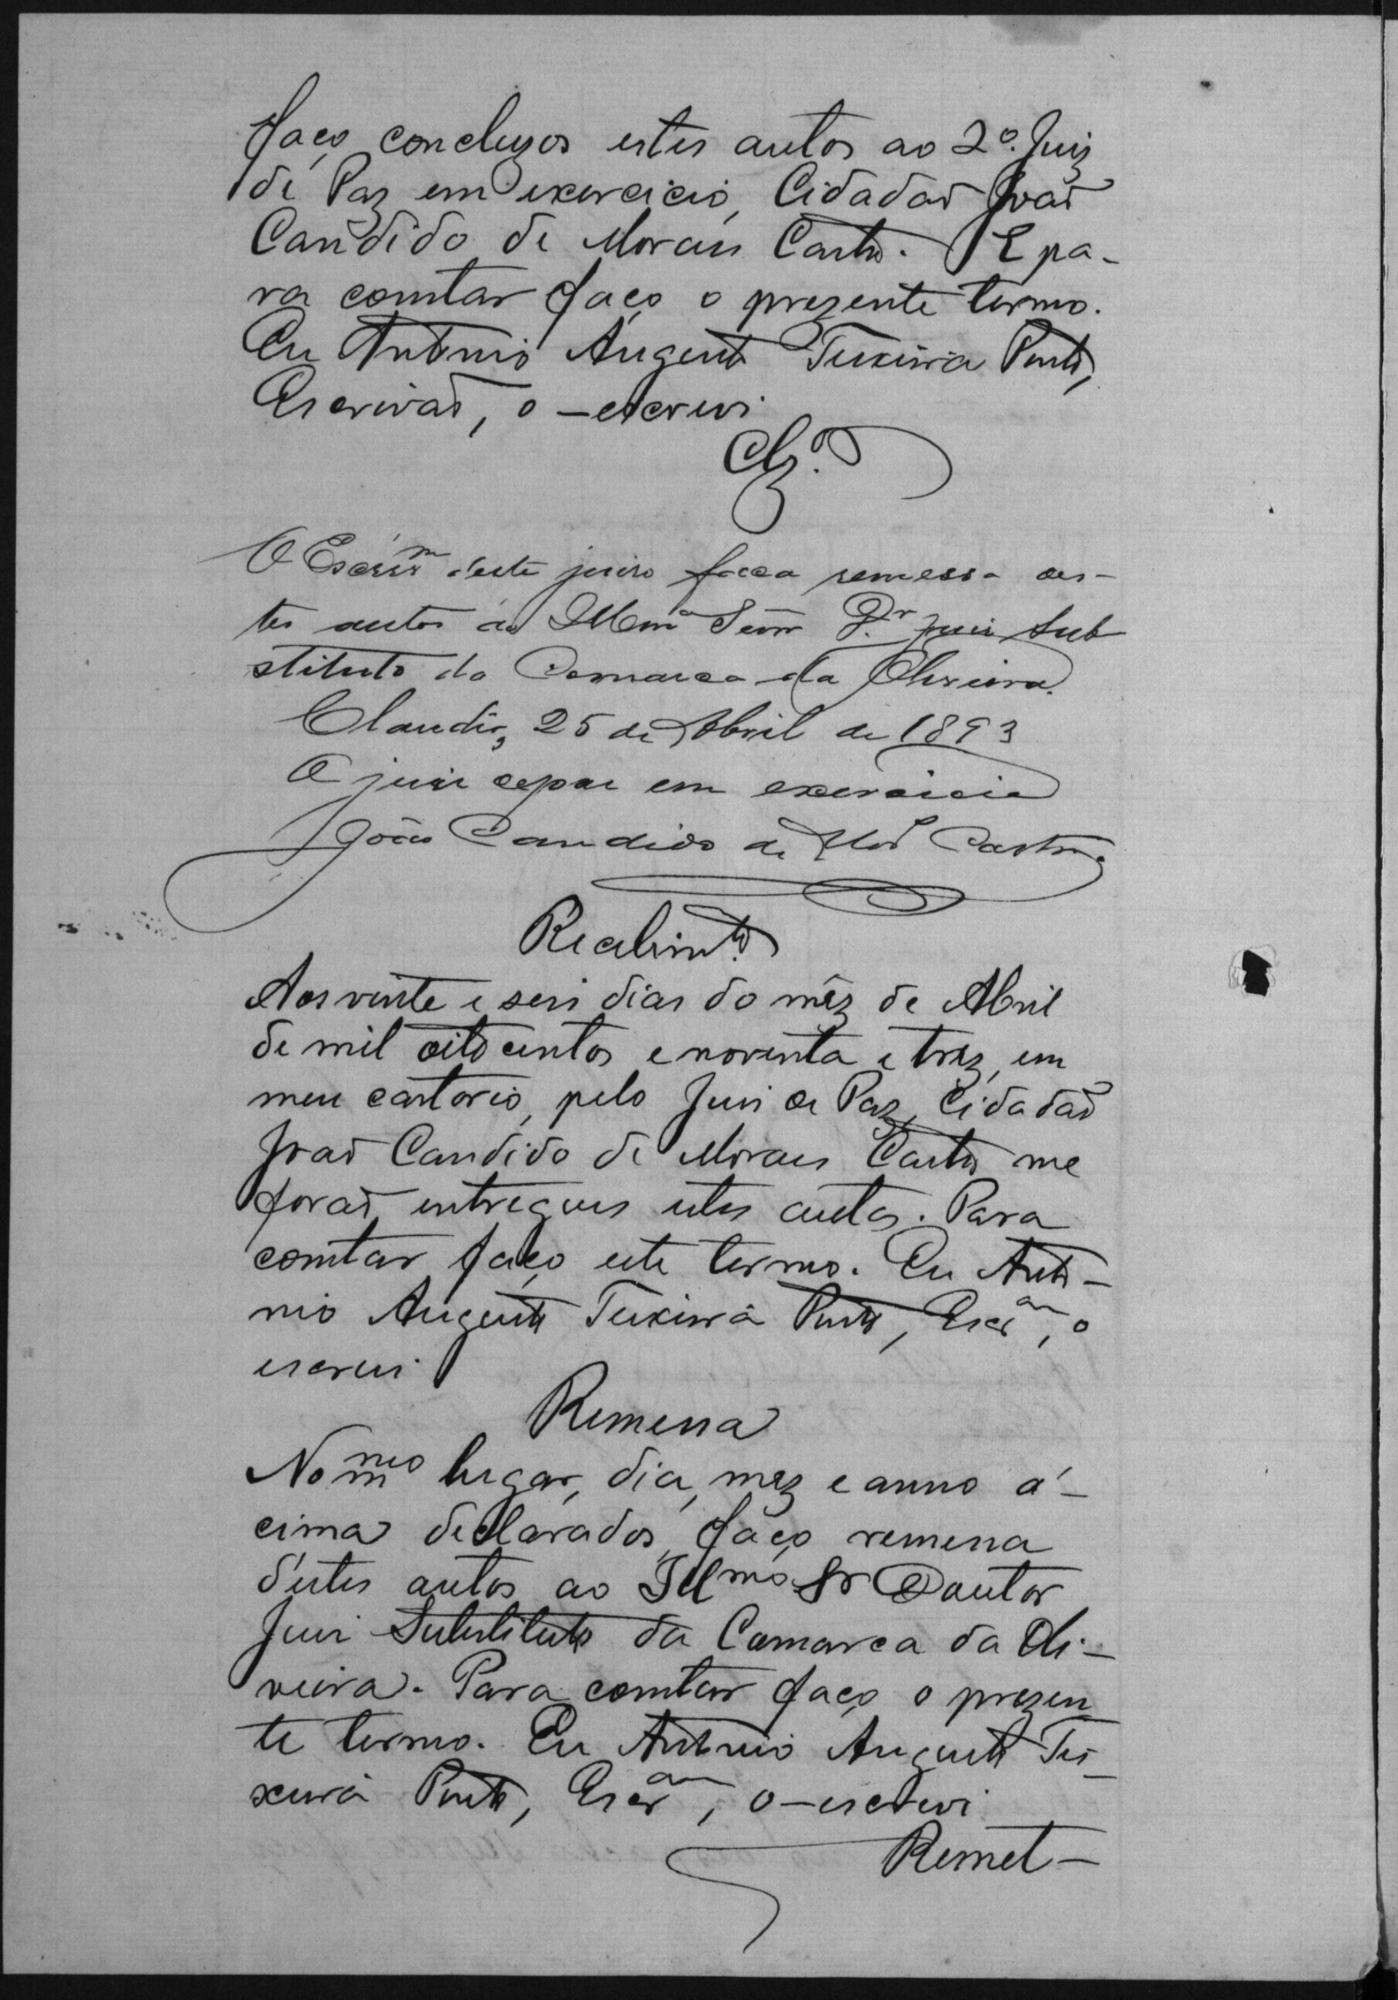 faço concluzos estes autos ao 2º. Juiz
de Paz em exercicio, Cidadaõ Joaõ
Candido de Moraes Castro. E pa-
ra constar faço o prezente termo.
Eu Antonio Augusto Teixeira Pinto,
Escrivaõ, o escrevi
Clz.º
O Escrivm deste juizo faca remessa des-
tes autos ao Illmº Senr Dr. juiz Sub
stituto da Comarca da Oliveira.
Claudio, 25 de Abril de 1893
O juiz depaz em exercicio
João Candido de Mors Castro
Recebimto.
Aos vinte e seis dias do mêz de Abril
de mil oitocentos e noventa e trez, em
meu cartorio, pelo Juiz de Paz, Cidadaõ
Joaõ Candido de Moraes Castro me
foraõ entregues estes autos. Para
constar faço este termo. Eu Anto-
nio Augusto Teixeira Pinto, Escram, o
escrevi
Remessa
No mmo lugar, dia, mez e anno á-
cima declarados, faço remessa
d'estes autos ao Illmo Sr Doutor
Juiz Substituto da Comarca da Oli-
veira. Para constar faço o prezen
te termo. Eu Antonio Augusto Tei-
xeira Pinto, Escram, o escrevi
Remet-